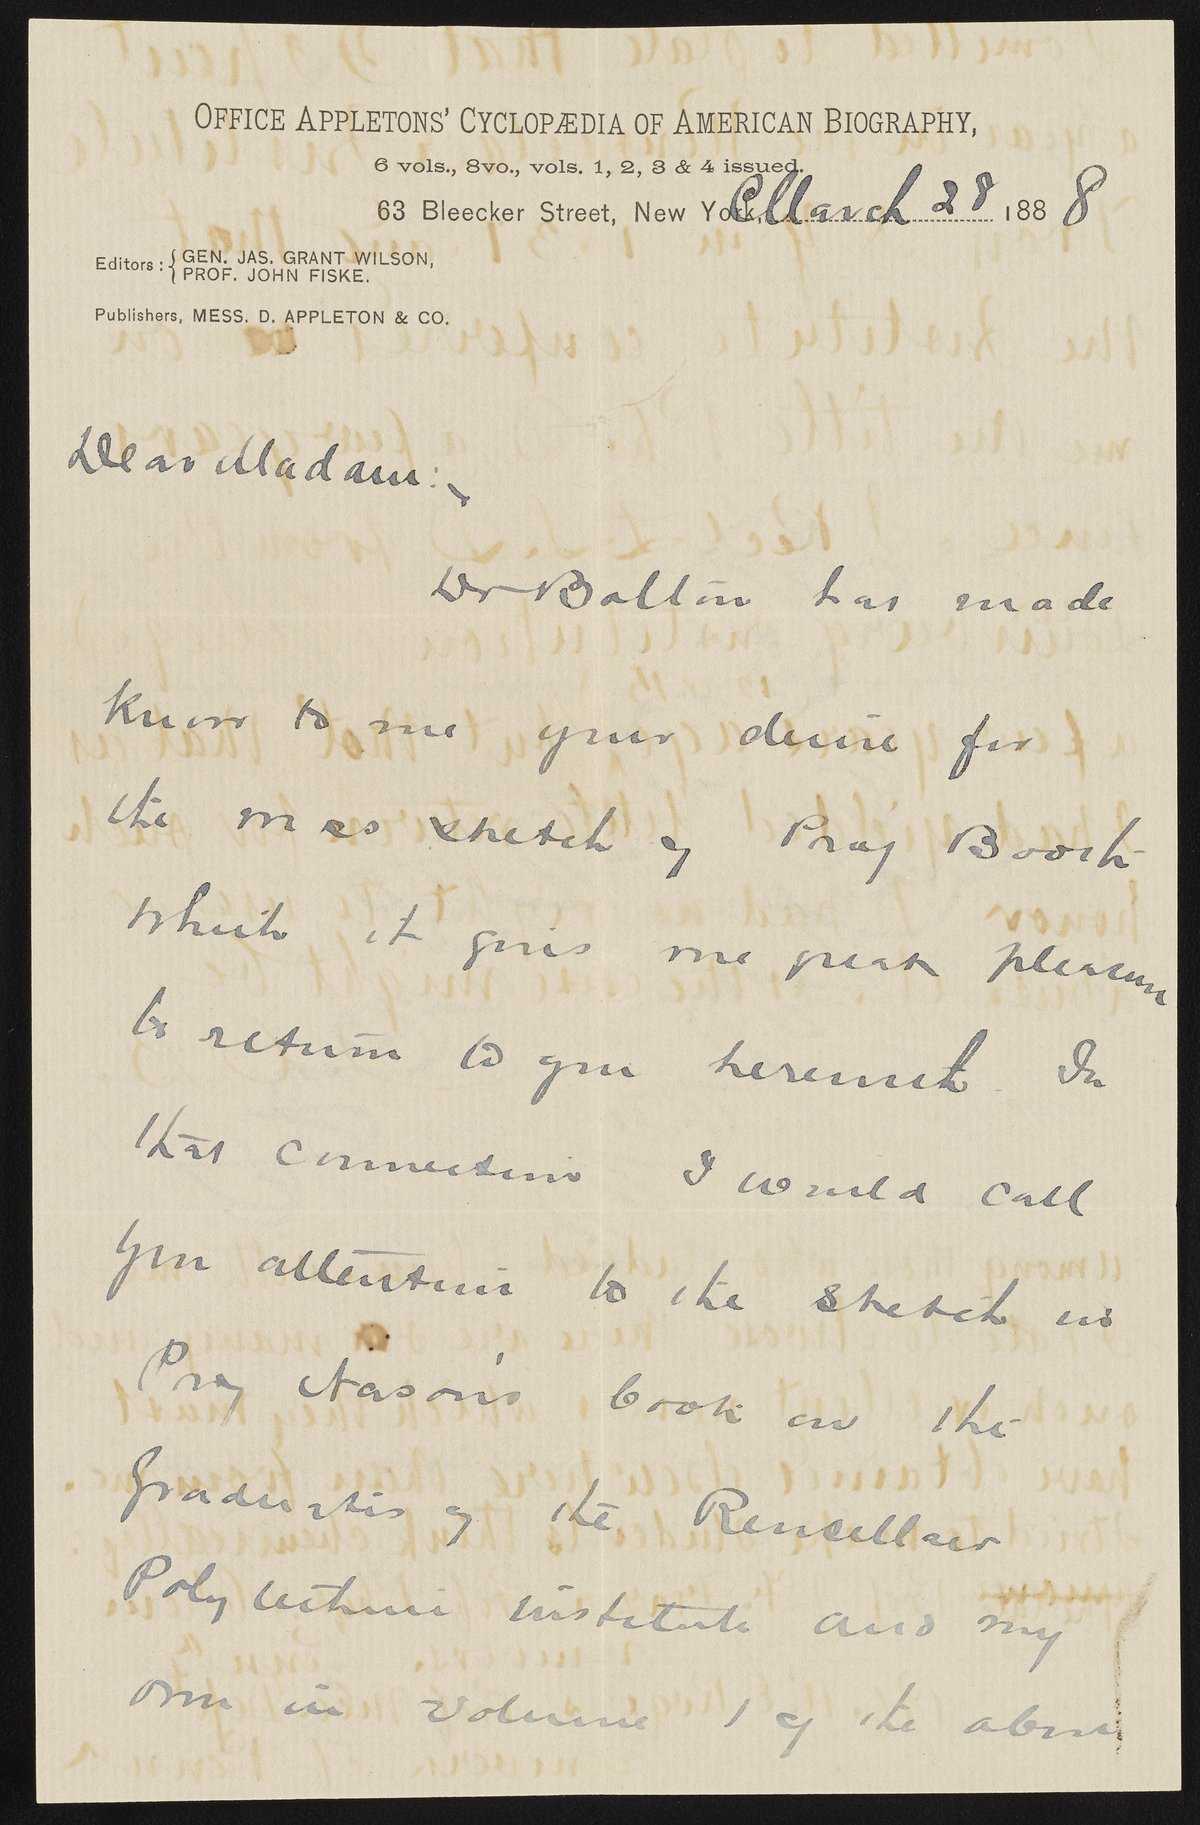 OFFICE APPLETONS' CYCLOPÆDIA OF AMERICAN BIOGRAPHY,
6 vols., 8vo., vols. 1, 2, 3 & 4 issued.
63 Bleecker Street, New York, March 28 1888
Editors: { GEN. JAS. GRANT WILSON,
PROF. JOHN FISKE.
Publishers, MESS. D. APPLETON & CO.
Dear Madam:
Dr Bolton has made
know to me your desire for
the mss sketch of Prof Booth
which it gives me great pleasure
to return to you herewith. In
that connection I would call
your attention to the sketch in
Prof Nason's book on the
graduates of the Rensellaer
Polytechnic institute and my
own in volume 1 of the above